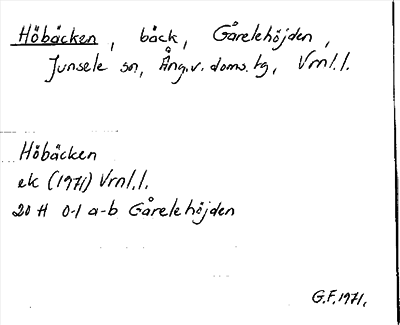 Höbäcken, bäck, Gårelehöjden,
Junsele sn, Ång.v. doms. hg, Vrnl.l.
Höbäcken
ek (1971) Vrnl.l.
20 H 0-1 a-b Gårelehöjden
G.F. 1971.